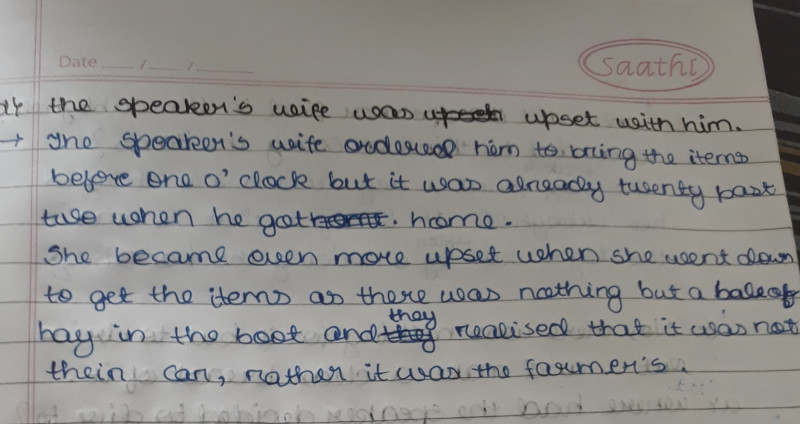 Date ___/___/______
Saathi
d) the speaker's wife was upset upset with him.
→ The speaker's wife ordered him to bring the items
before one o' clock but it was already twenty past
two when he got home. home.
She became even more upset when she went down
to get the items as there was nothing but a bale of
they
hay in the boot and they realised that it was not
their car, rather it was the farmer's.